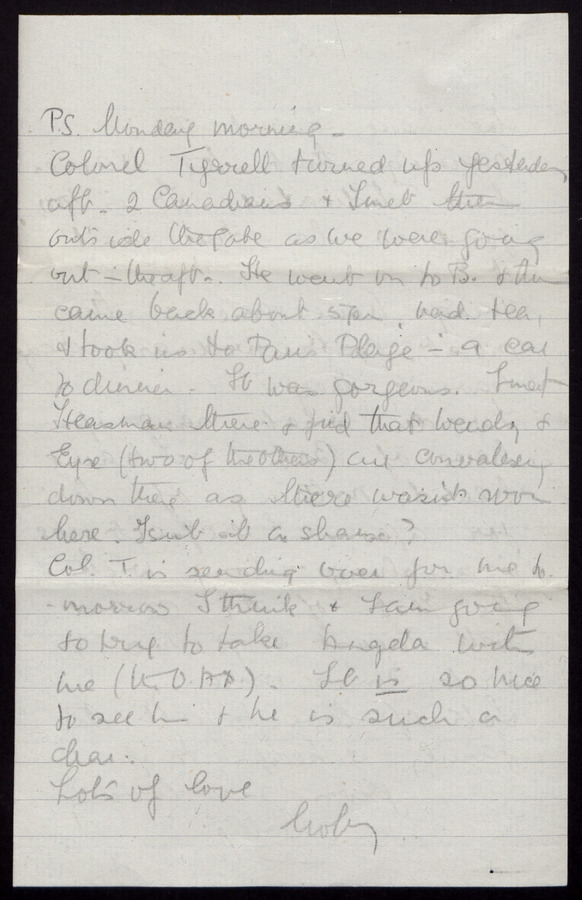 P.S. Monday morning -
Colonel Tyrrell turned up yesterday
aft. 2 Canadians & I met them
outside the gate as we were going
out - the aft. He went on to B. & then
came back about 5pm, had tea,
& took us to Paris Plage - a car
to dinner. It was gorgeous. I met
Heasman there & find that Wendy &
Eyre (two of the others) are convalescing
down there as there wasn't room
here. Isn't it a shame?
Col. T. is sending over for me to
-morrow I think & I am going
to try to take Angela with
me (the V.A.D.). It is so nice
to see him & he is such a
dear.
Lots of love